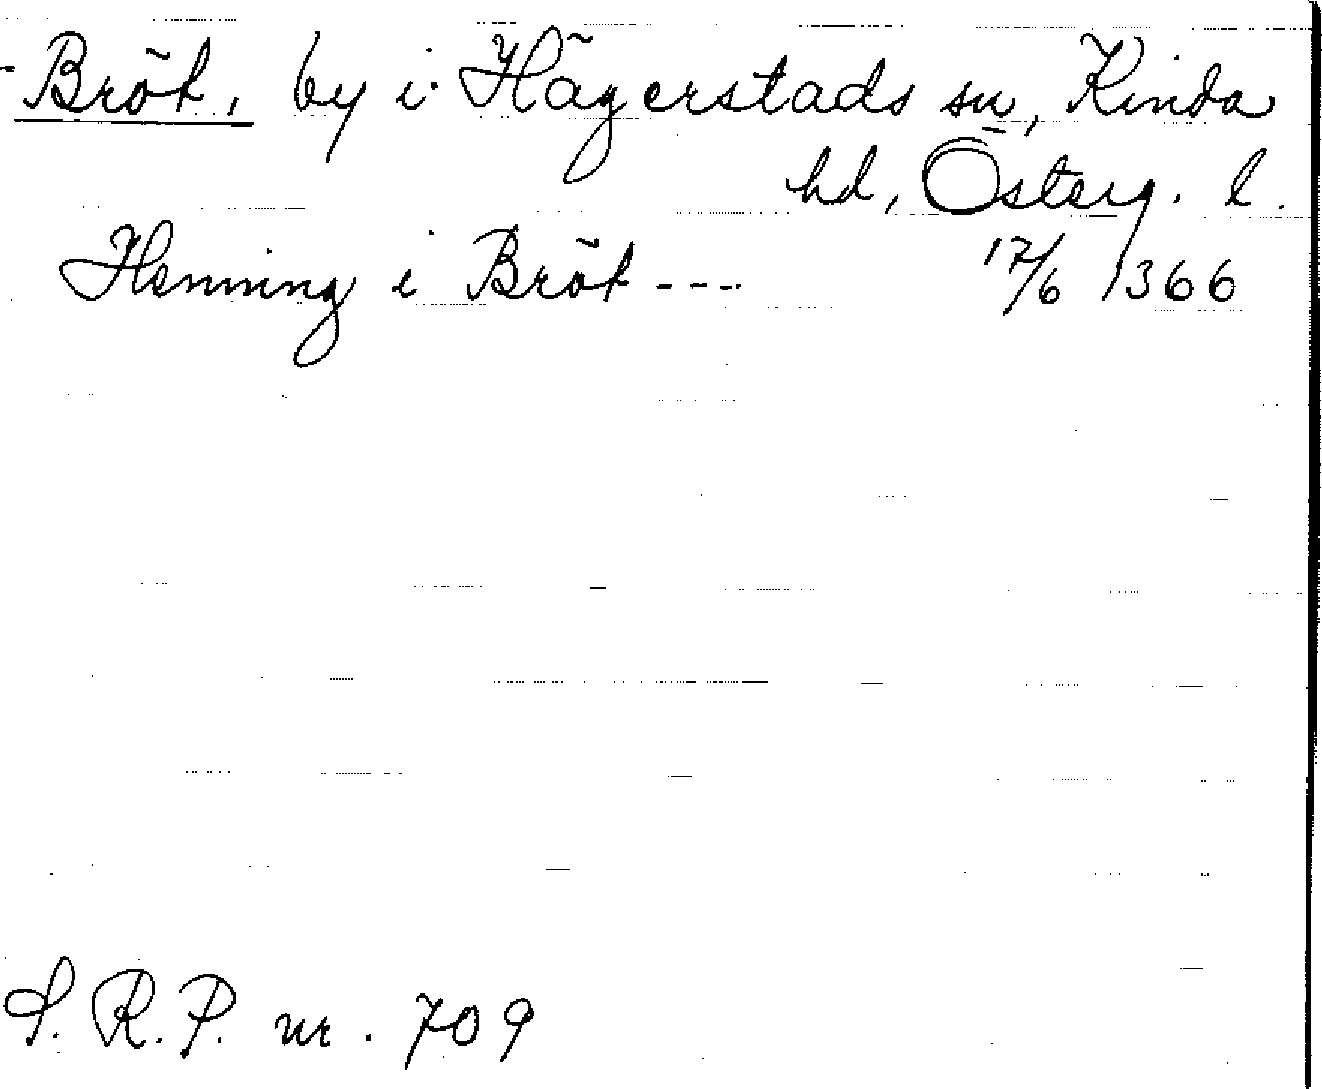 Bröt, by i Hägerstads sn, Kinda
hd, Österg. l.
Henning i Bröt --- 17/6 1366
S. R. P. nr. 709